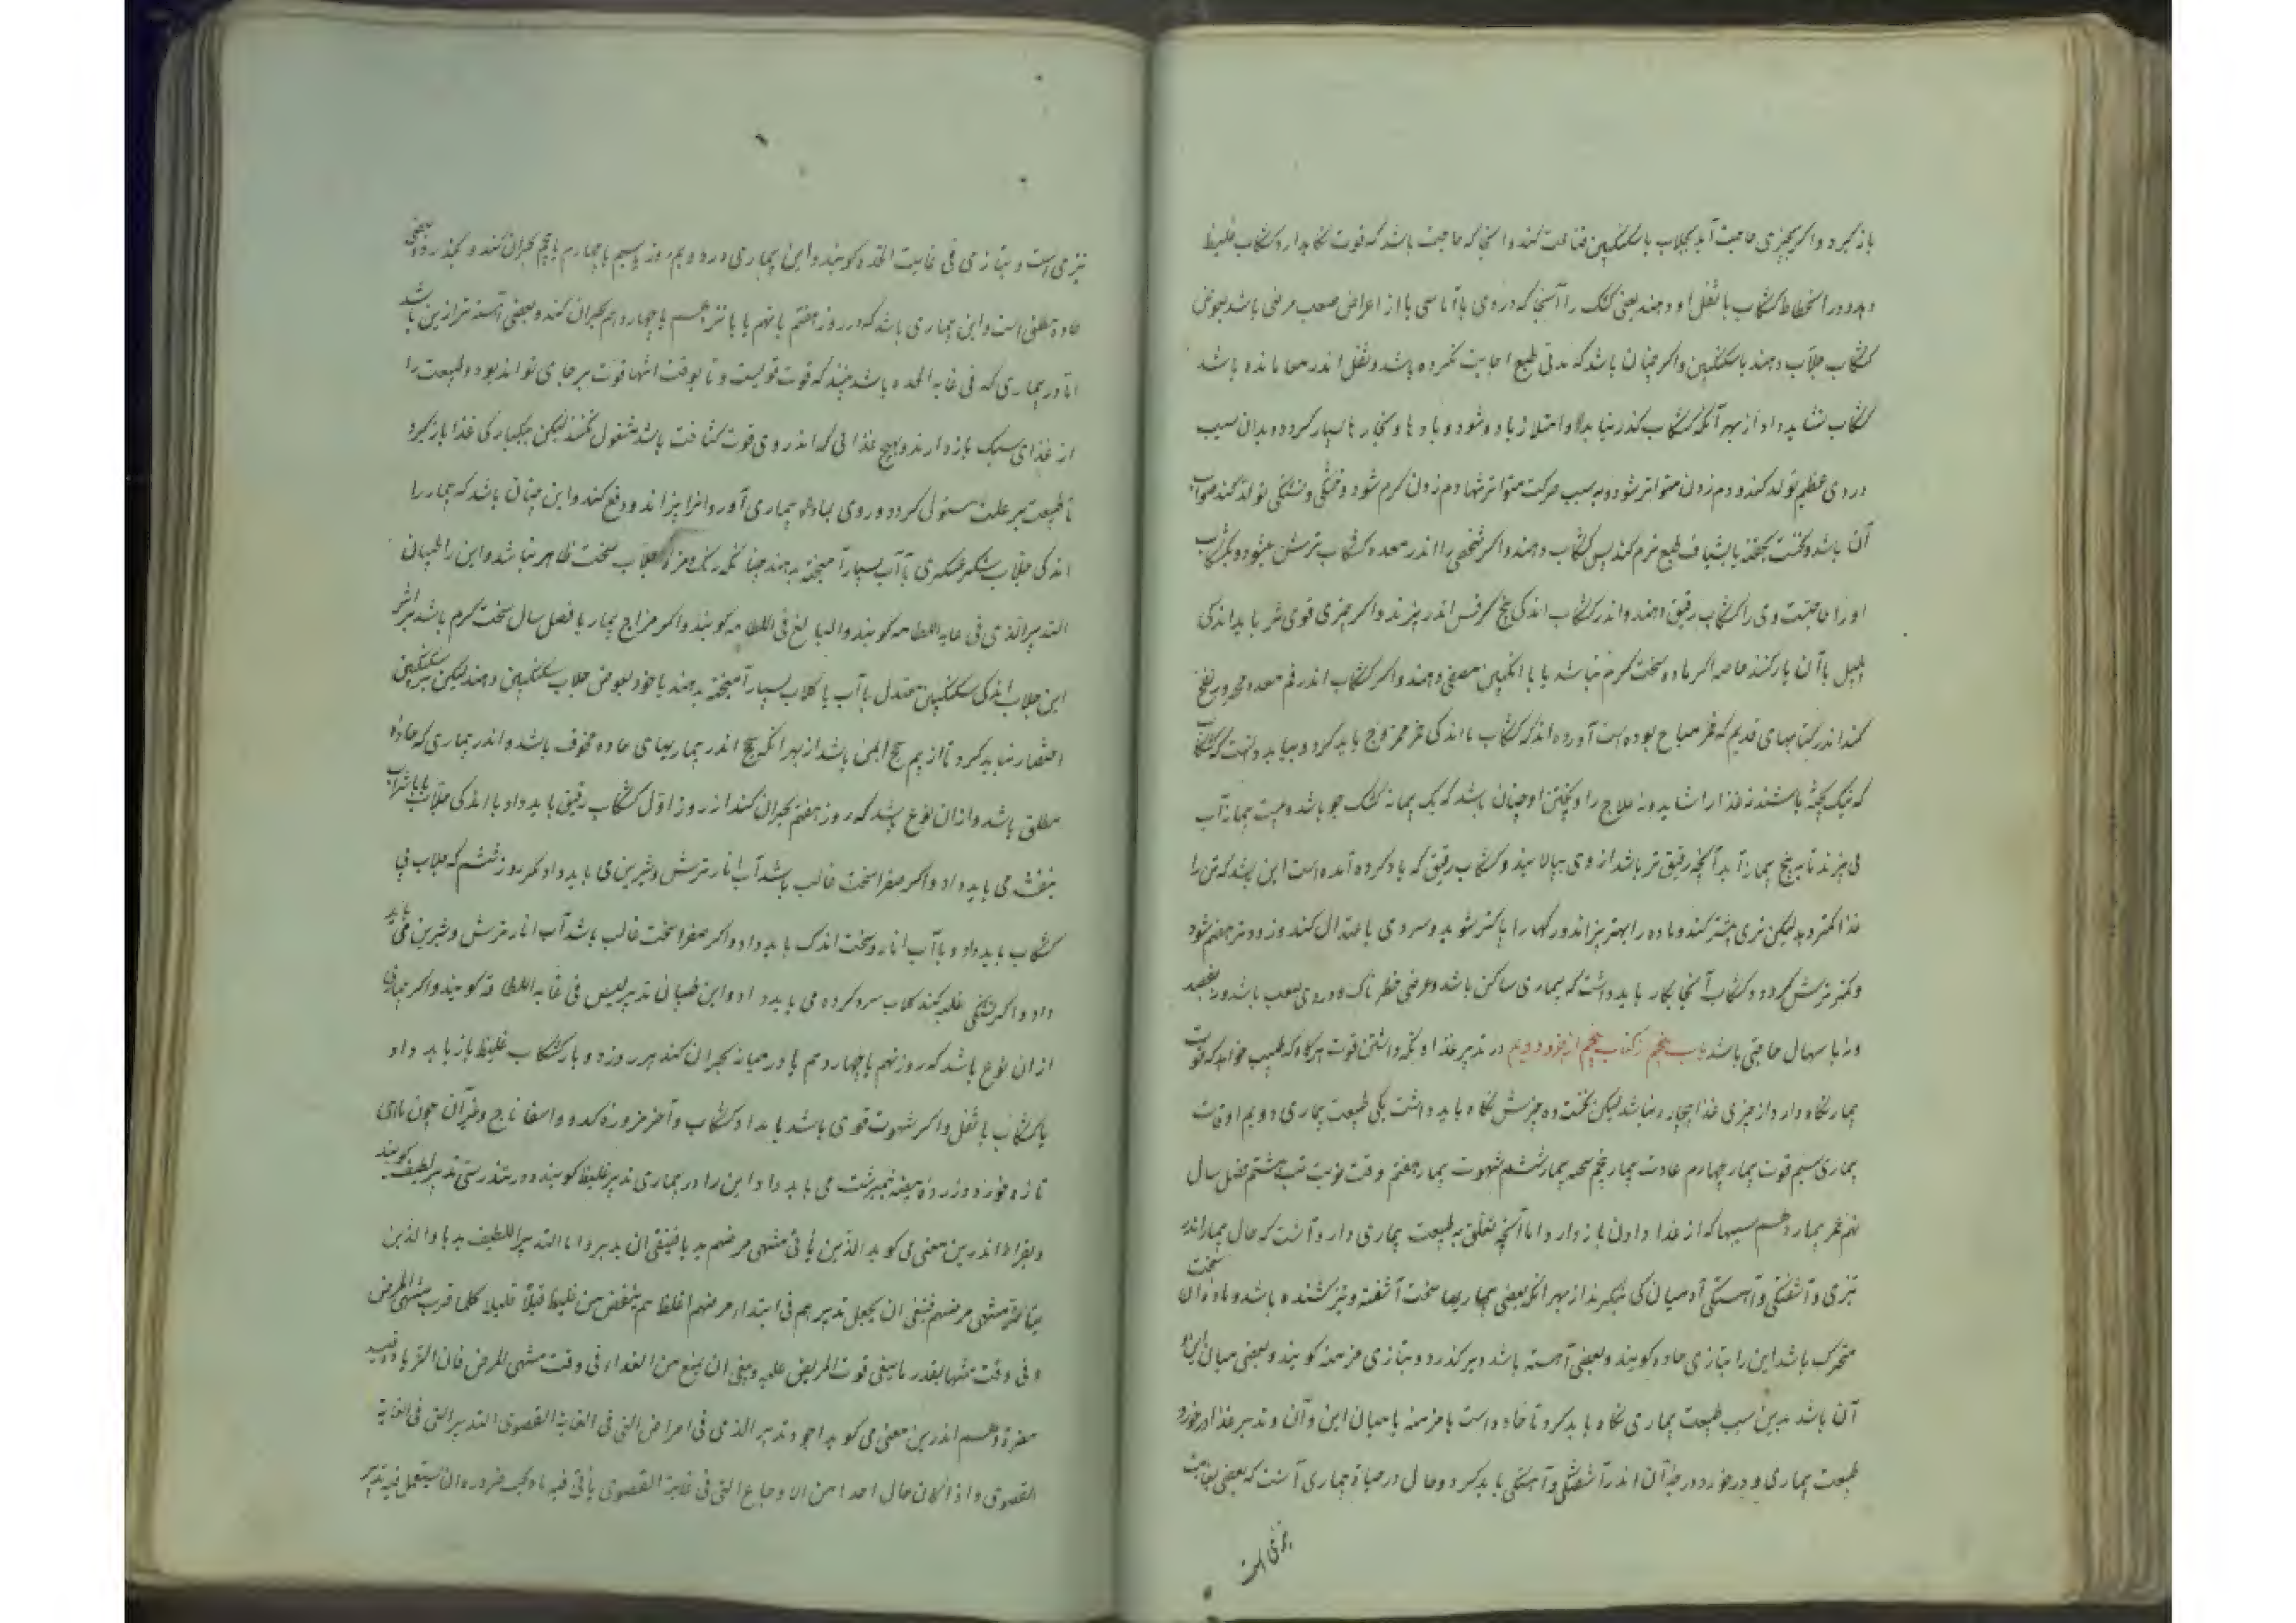 باز گیرد و اگر بچیزی حاجت آید بجلاب یا سکنگبین قناعت کند و آنجا که حاجت باشد که قوت نگاه دارد کشکاب غلیظ
دهد و در انحطاط کشکاب با ثفل او دهند یعنی کشک را آنجا که دردی یا آماسی یا از اعراض صعب مرضی باشد بعوض
کشکاب جلاب دهند یا سکنگبین و اگر چنان باشد که مدتی طبع اجابت نکرده باشد و ثفل اندر معا مانده باشد
کشکاب نشاید داد از بهر آنکه کشکاب گذر نیابد و امتلا زیاد شود و بادها و بخارها بسیار گردد و بدان سبب
دردی عظیم تولد کند و دم زدن متواتر شود و به سبب حرکت متواتر شها دم زدن گرم شود و خشکی و تشنگی تولد کند صواب
آن باشد که نخست بحقنه یا بشیاف طبع نرم کند پس کشکاب دهند و اگر شخصی را اندر معده کشکاب ترش میشود و بکشکاب
او را حاجتست وی را کشکاب رقیق دهند و اندر کشکاب اندکی بیخ کرفس اندر پزند و اگر چیزی قوی تر باید اندکی
پلپل با آن یار کنند خاصه اگر ماده سخت گرم نباشد یا با انگبین مصفی دهند و اگر کشکاب اندر فم معده
کند اندر کتابهای قدیم که خمر مباح بوده است آورده اند که کشکاب با اندکی خمر ممزوج باید کرد و بباید دانست که کشکاب
که نیک پخته باشند نه غذا را شاید و نه علاج را و پختن او چنان باشد که یک پیمانه کشک جو باشد و بیست پیمانه آب
می پزند تا به پنج پیمانه آید آنچه رقیق تر باشد از وی بپالایند و کشکاب رقیق که یاد کرده آمده است این باشد که تن را
غذا کمتر دهد لیکن تری بیشتر کند و ماده را بهتر پزاند و رگها را پاکتر شوید و سردی با عتدال کند و زودتر هضم شود
و کمتر ترش گردد و کشکاب آنجا بکار باید داشت که بیماری ساکن باشد و عرضی خطرناک و دردی صعب باشد و نه بفصد
و نه باسهال حاجتی باشد باب پنجم از کتاب پنجم از جزو دویم در تدبیر غذا و نگه داشتن قوت هرگاه که طبیب خواهد که قوت
بیمار نگاه دارد از چیزی غذا بیچاره نباشد لیکن نخست ده چیزش نگاه باید داشت یکی طبیعت بیماری دویم اوقات
بیماری سیم قوت بیمار چهارم عادت بیمار پنجم سحنه بیمار ششم شهوت بیمار هفتم وقت نوبت تب هشتم فصل سال
نهم عمر بیمار دهم سببها که از غذا دادن باز دارد اما آنچه تعلق به طبیعت بیماری دارد آنست که حال بیمار اندر
تیزی و آشفتگی و آهستگی آدمیان کی بنگرند از بهر آنکه بعضی بیماریها سخت آشفته و تیز کشنده باشد و ماده آن سخت
متحرک باشد این را بتازی حاده گویند و بعضی آهسته باشد و دیر گذرد و بتازی مزمنه گویند و بعضی میان این و
آن باشد بدین سبب طبیعت بیماری نگاه باید کرد تا حاده است یا مزمنه یا میان این و آن و تدبیر غذا در خورد
طبیعت بیماری و در خورد درجه آن اندر آشفتگی و آهستگی باید کرد و حال درجهای بیماری آنست که بعضی بغایت
تیزی است
تیزی است و بتازی فی غایت الحده گویند و این بیماری در دویم روز یا سیم یا چهارم یا پنجم بحران کند و بگذرد و بعضی
حاده مطلق است و این بیماری باشد که در روز هفتم یا نهم یا یازدهم یا چهاردهم بحران کند و بعضی آهسته تر ازین باشد
اما در بیماری که فی غایة الحده باشد بنگرند که قوت قویست و تا بوقت انتها قوت بر جای تواند بود و طبیعت را
از غذای سبک باز دارند و بهیچ غذائی که اندر وی قوت کثافت باشد مشغول نکنند لیکن بیکبارگی غذا باز گیرد
تا طبیعت بر علت مستولی گردد و روی بمادهٔ بیماری آورد و آنرا بپزاند و دفع کند و این چنان باشد که بیمار را
اندکی جلاب شکر عسکری با آب بسیار آمیخته بدهند چنانکه رنگ و مزهٔ جلاب سخت ظاهر نباشد و این را طبیبان
التدبیر الذی فی غایة اللطافه گویند و البالغ فی اللطافه گویند و اگر مزاج بیمار یا فصل سال سخت گرم باشد
این جلاب اندکی سکنگبین معتدل با آب یا گلاب بسیار آمیخته بدهند یا خود بعوض جلاب سکنگبین دهند لیکن بر سکنگبین
اختصار نباید کرد تا از بیم سحج ایمن باشد از بهر آنکه سحج اندر بیماریهای حاده مخوف باشد و اندر بیماری که حادهٔ
مطلق باشد و از آن نوع باشد که روز هفتم بحران کند از روز اول کشکاب رقیق باید داد با اندکی جلاب یا با شراب
بنفشه می باید داد و اگر صفرا سخت غالب باشد آب انار ترش و شیرین می باید داد مگر روز ششم که جلاب بی
کشکاب باید داد و با آب انار و سخت اندک باید داد و اگر صفرا سخت غالب باشد آب انار ترش و شیرین می باید
داد و اگر تشنگی غلبه کند گلاب سرد کرده می باید داد و این طبیبان تدبیر لیس فی غایة اللطافة گویند و اگر بیماری
از آن نوع باشد که روز نهم یا چهاردهم یا در میانه بحران کند هر روز دو بار کشکاب غلیظ باز باید داد
یا کشکاب با ثفل و اگر شهوت قوی باشد بامداد کشکاب و آخر مزورهٔ کدو و اسفاناج و جز آن چون ماهی
تازه خورد و زردهٔ بیضه نیمبرشت می باید داد و این را در بیماری تدبیر غلیظ گویند و در تندرستی تدبیر لطیف گویند
و بقراط اندرین معنی می گوید الذین یأتی منتهی مرضهم بدیا فینبغی ان یدبروا با التدبیر اللطیف بدیا والذین
یتأخر منتهی مرضهم فینبغی ان یجعل تدبیرهم فی ابتداء مرضهم اغلظ ثم ینقص من غلیظ قلیلا قلیلا کلما قرب منتهی المرض
و فی وقت منتها بقدر ما یبقی قوت المریض علیه و ینبغی ان یمنع من الغذاء فی وقت منتهی المرض فان الزیادة فیه
مضرة و هم اندرین معنی می گوید اجود تدبیر الذی فی امراض التی فی الغایة القصوی التدبیر التی فی الغایة
القصوی و اذا کان حال احدا من الاوجاع التی فی غایة القصوی یأتی فیه بادیا یجب ضروره ان یستعمل فیه تدبیر